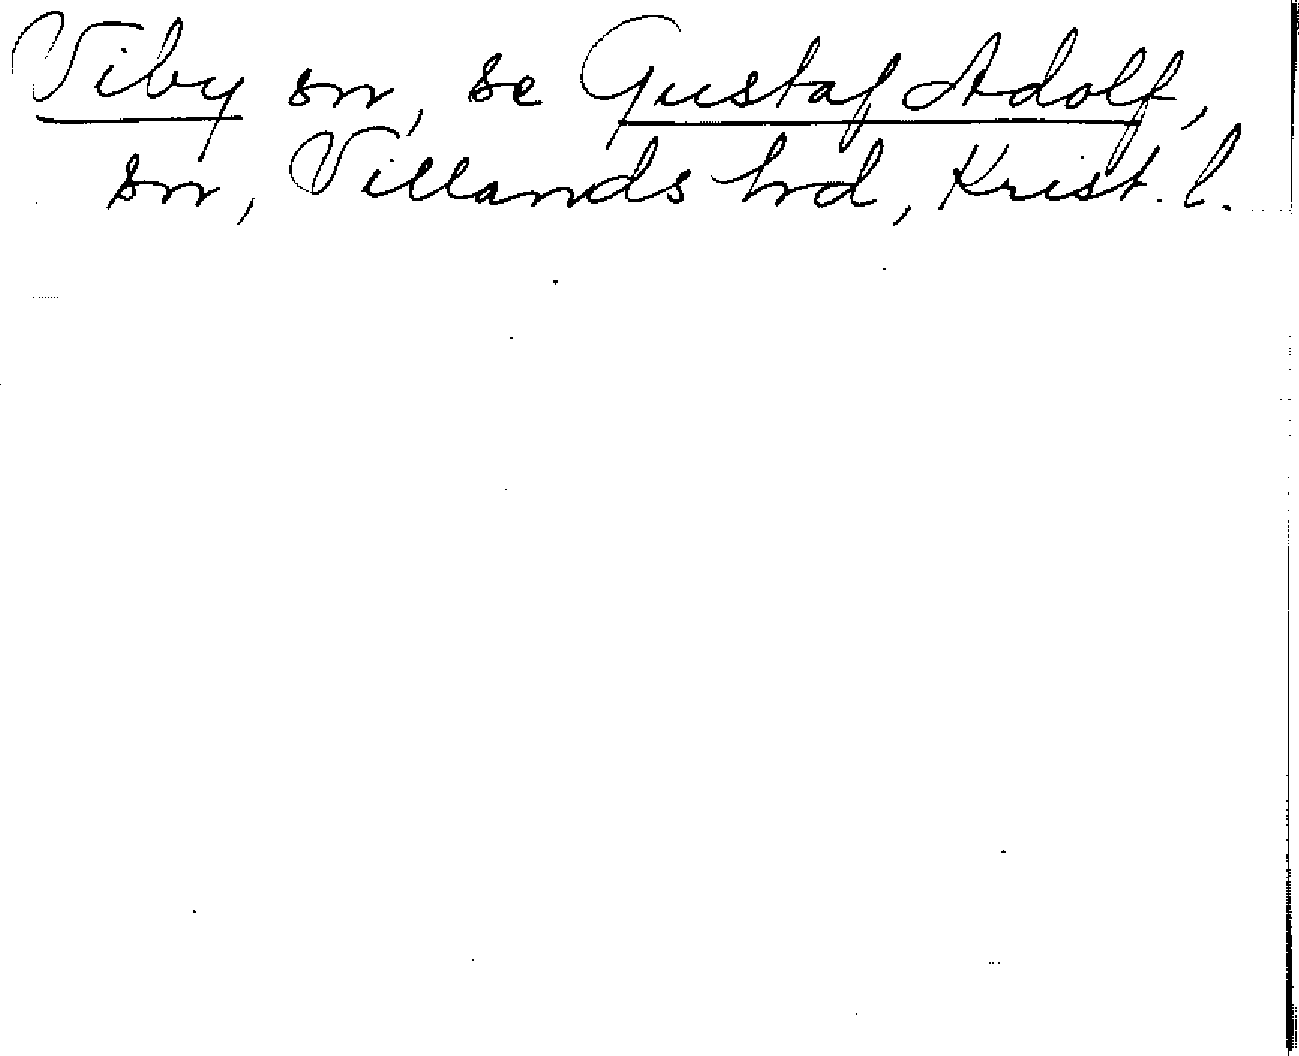 Viby sn, se Gustaf Adolf,
sn, Villands hd, Krist. l.